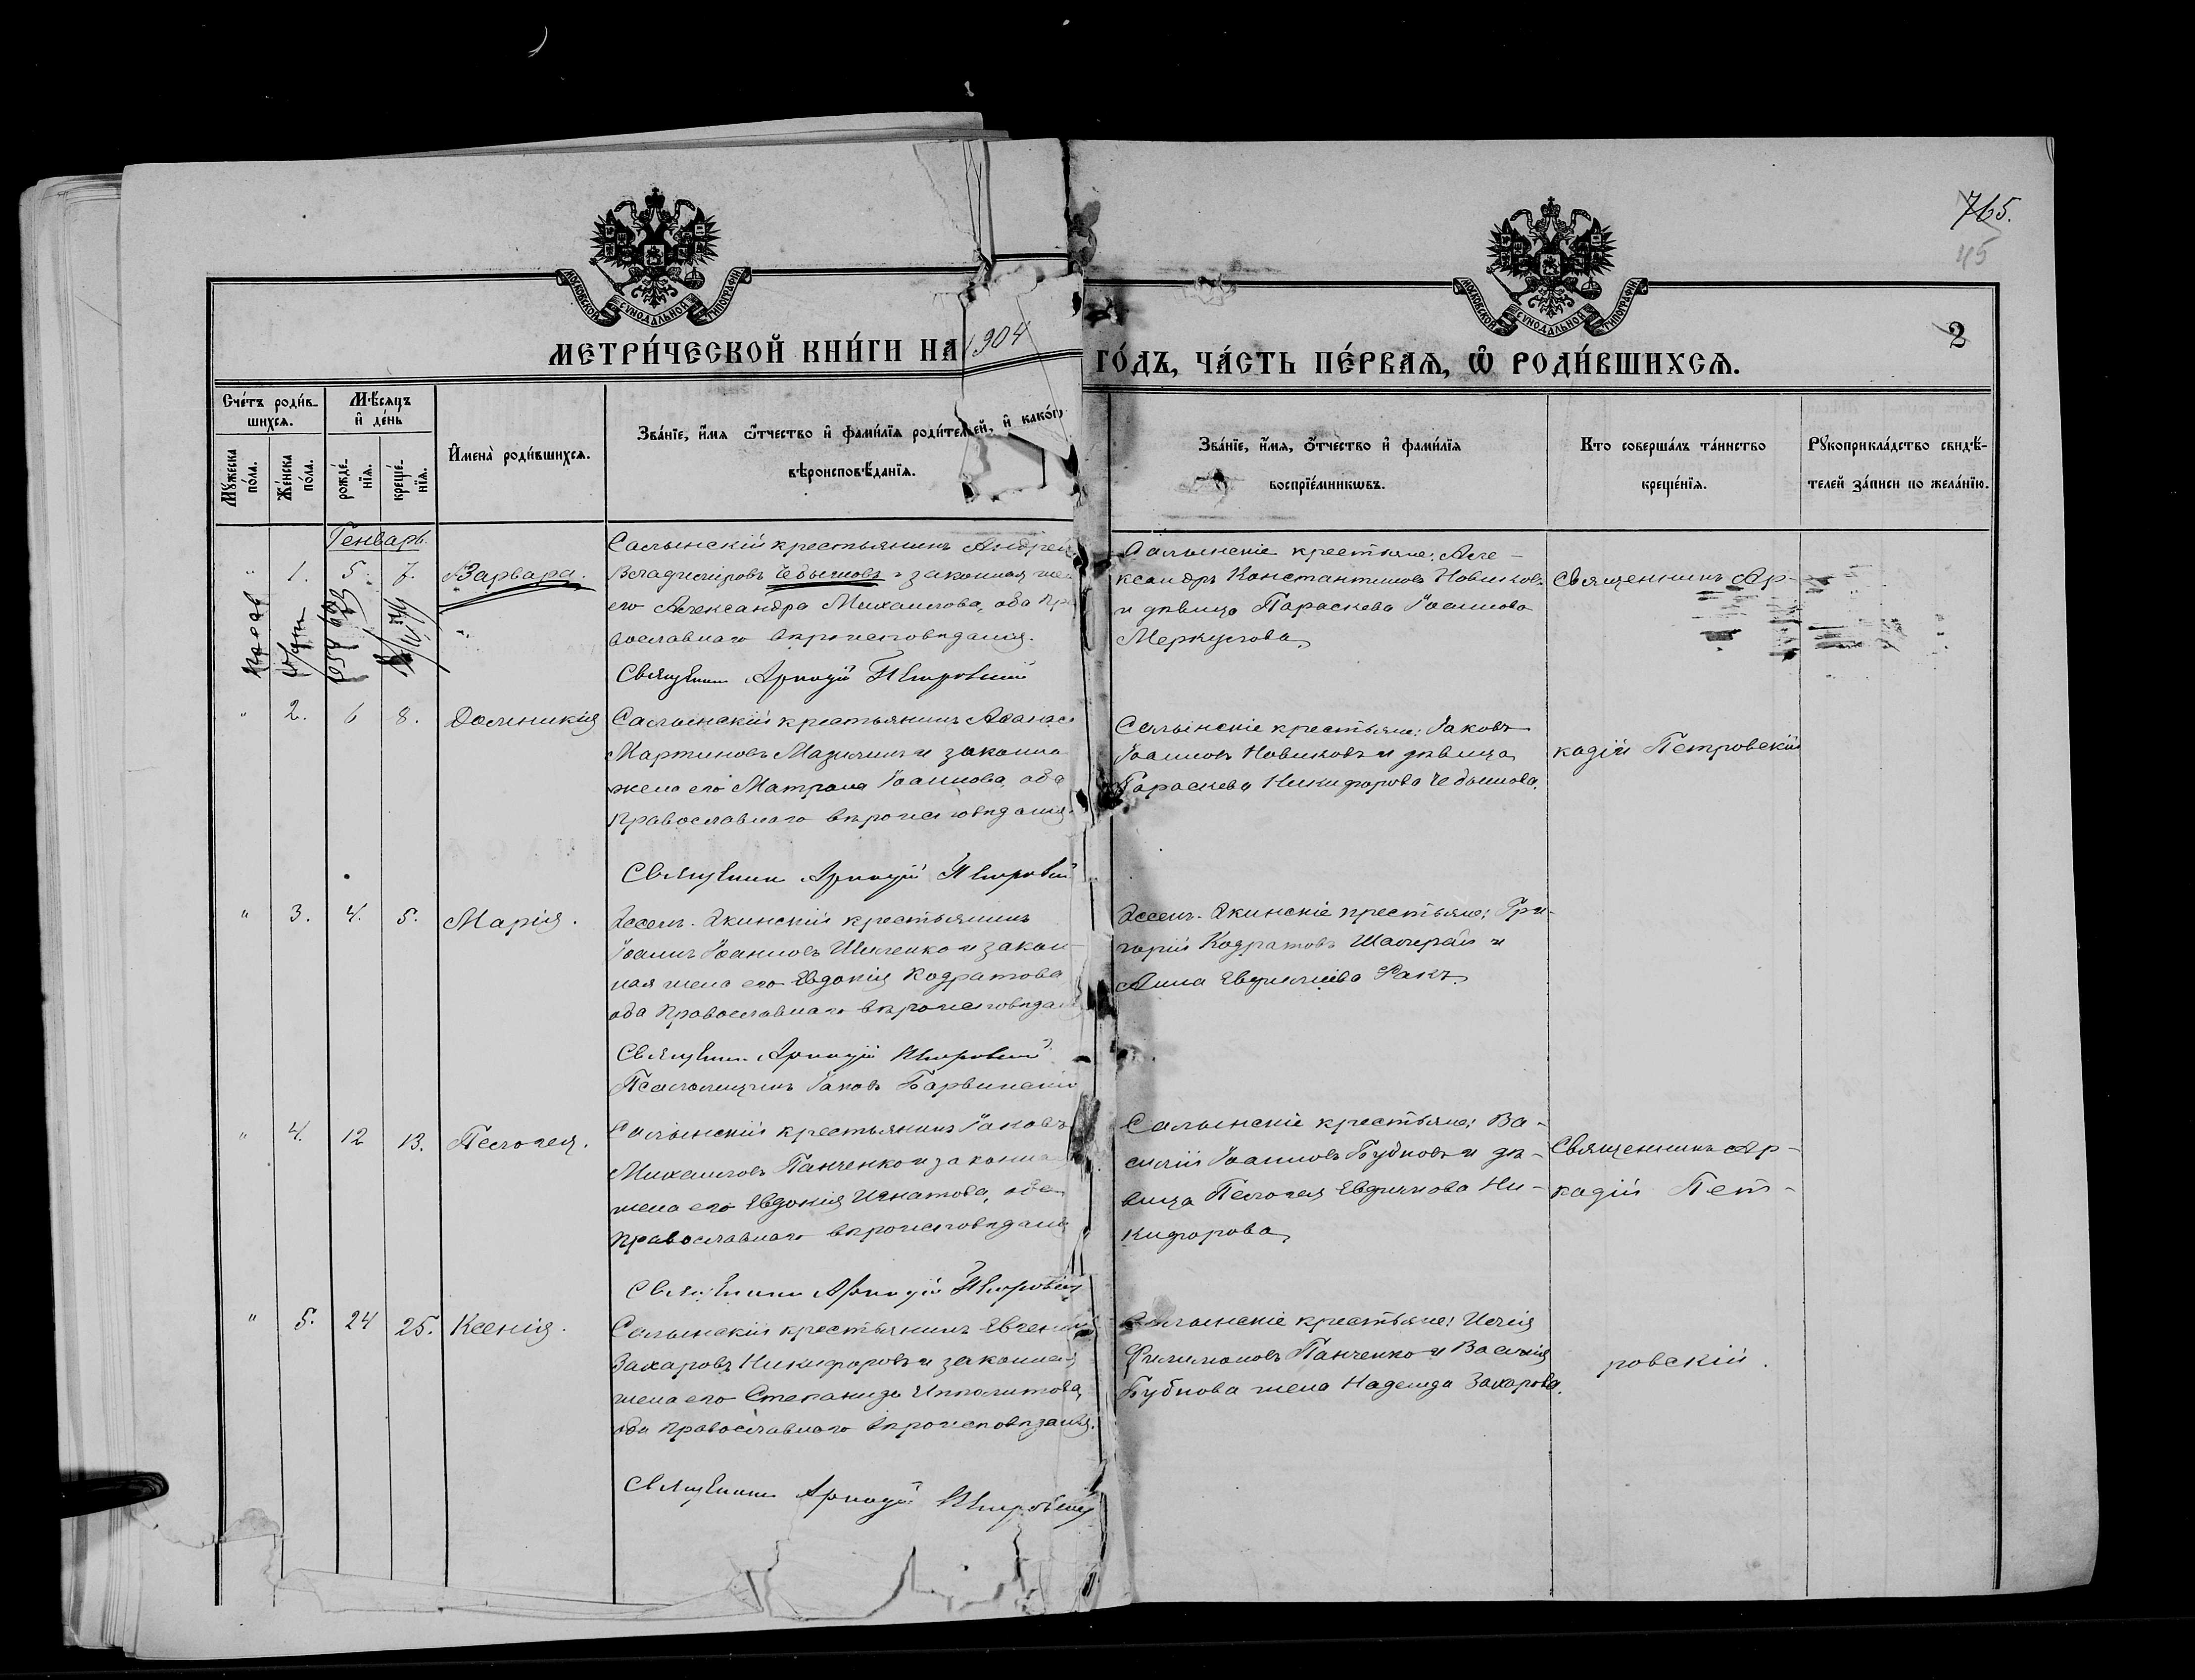 765.
45
МОСКОВСКОЙ СУНОДАЛЬНОЙ ТИПОГРАФІИ
МОСКОВСКОЙ СУНОДАЛЬНОЙ ТИПОГРАФІИ
2
МЕТРИ́ЧЕСКОЙ КНИ́ГИ НА 1904 ГО́ДЪ, ЧА́СТЬ ПЕ́РВАѦ, Ѡ҆ РОДИ́ВШИХСѦ.
Сче́тъ роди́в-
шихсѧ.
Мѣ́сѧцъ
и҆ де́нь
Мꙋ́жеска
по́ла.
Же́нска
по́ла.
рожде́-
нїѧ.
креще́-
нїѧ.
И҆мена̀ роди́вшихсѧ.
Зва́нїе, и҆́мѧ ѻ҆́тчество и҆ фами́лїѧ роди́телей, и҆ како́гѡ
вѣроисповѣ́данїѧ.
Зва́нїе, и҆́мѧ, ѻ҆́тчество и҆ фами́лїѧ
воспрїе́мникѡвъ.
Кто соверша́лъ та́инство
креще́нїѧ.
Рꙋкоприкла́дство свидѣ́-
телей за́писи по жела́нїю.
Генварь.
" 1. 5. 7. Варвара.
Салынскій крестьянинъ Андрей
Владиміровъ Чебышовъ и законная же
его Александра Михаилова, оба пра
вославнаго вѣроисповѣданія.
Священникъ Аркадій Петровскій
Салынскіе крестьяне: Але-
ксандръ Константиновъ Новиковъ
и дѣвица Параскева Іоаннова
Меркулова
Священникъ Ар-
" 2. 6 8. Домникія
Салынскій крестьянинъ Аѳанас
Мартиновъ Мазичинъ и законна
жена его Матрона Іоаннова, оба
православнаго вѣроисповѣданія.
Священникъ Аркадій Петровскій
Салынскіе крестьяне: Іаковъ
Іоанновъ Новиковъ и дѣвица
Параскева Никифорова Чебышова.
кадій Петровскій
" 3. 4. 5. Марія.
Ассень-Акинскій крестьянинъ
Іоаннъ Іоанновъ Шиленко и закон-
ная жена его Евдокія Кодратова
оба православнаго вѣроисповѣдан
Священникъ Аркадій Петровскій
Псаломщикъ Іаковъ Барвинскій
Ассень-Акинскіе крестьяне: Гри-
горій Кодратовъ и
Анна Евфиміева Ракъ
" 4. 12 13. Пелагея.
Салынскій крестьянинъ Іаковъ
Михаиловъ Панченко и законна
жена его Евдокія Игнатова, оба
православнаго вѣроисповѣдані
Священникъ Аркадій Петровскій
Салынскіе крестьяне: Ва-
силій Іоанновъ Бубновъ и дѣ-
вица Пелагея Евфимова Ни-
кифорова
Священникъ Ар-
кадій Пет-
" 5. 24 25. Ксенія.
Салынскій крестьянинъ Евгеній
Захаровъ Никифоровъ и законная
жена его Степанида Ипполитова,
оба православнаго вѣроисповѣданія.
Священникъ Аркадій Петровскій
Салынскіе крестьяне: Илія
Филимоновъ Панченко и Василія
Бубнова жена Надежда Захарова.
ровскій.